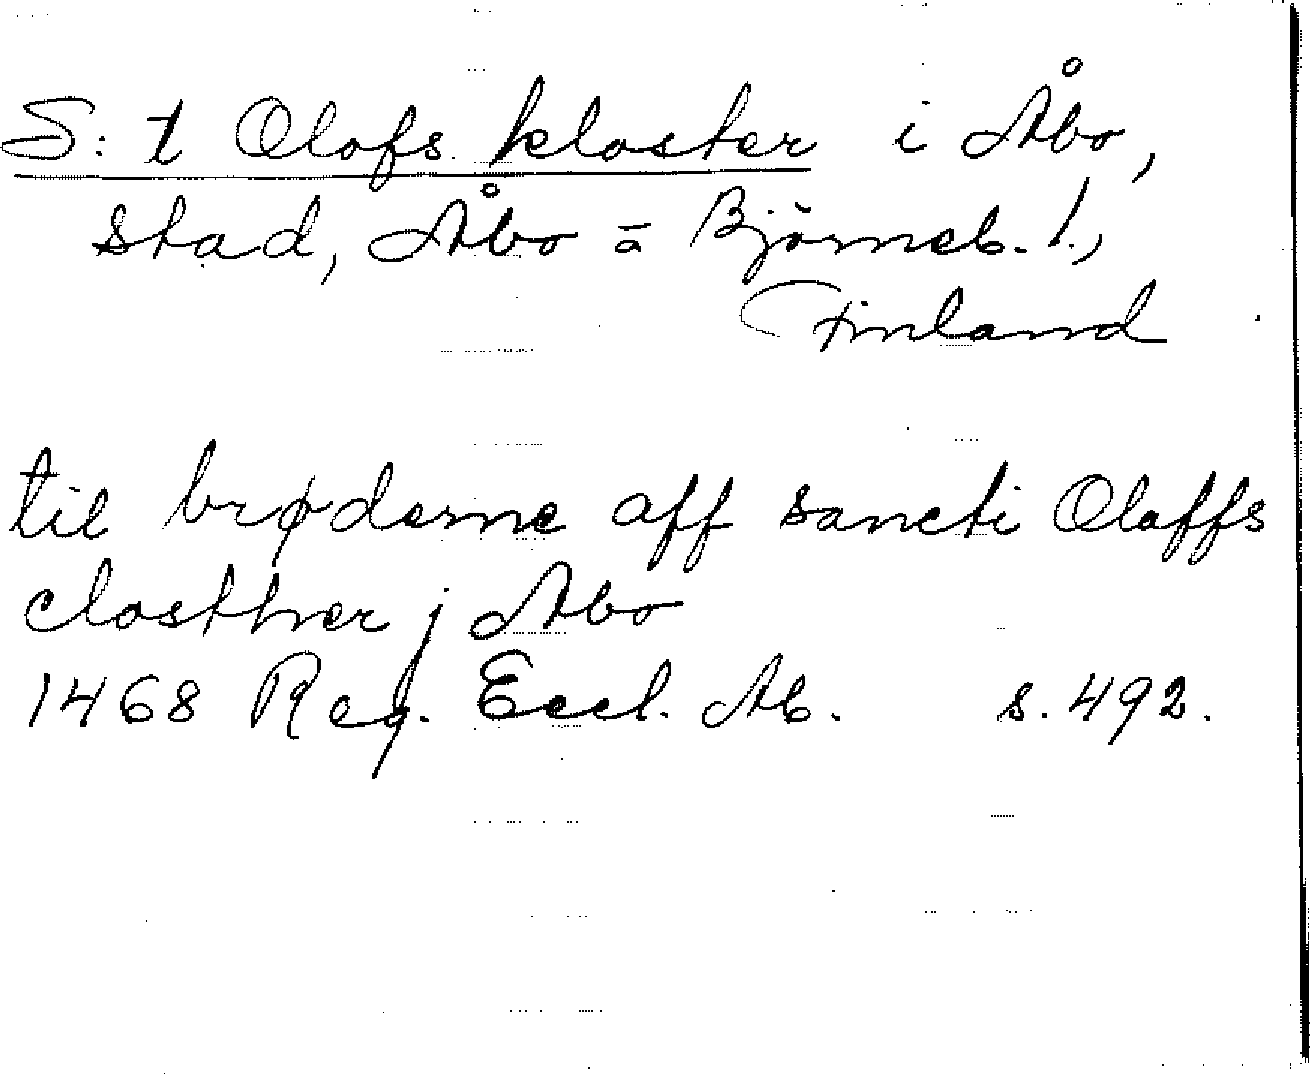 S:t Olofs kloster i Åbo,
stad, Åbo = Björneb. l.,
Finland
til brøderne aff sancti Olaffs
closther j Abo
1468 Reg. Eccl. Ab. s. 492.